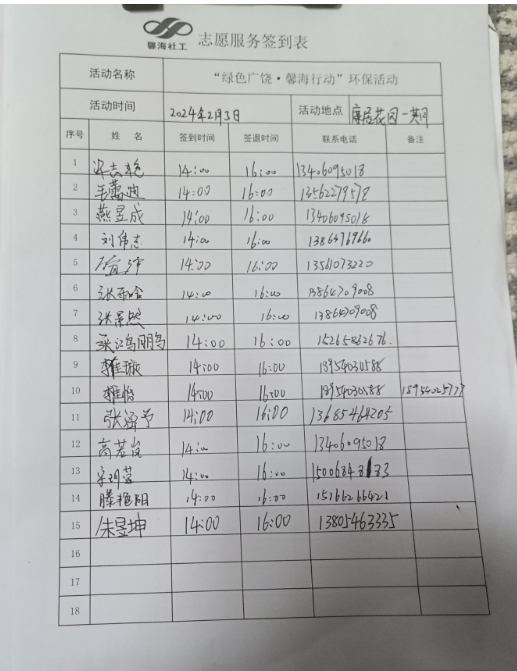 馨海社工 志愿服务签到表
活动名称 “绿色广饶·馨海行动”环保活动
活动时间 2024年2月3日 活动地点 康居花园一期
序号 姓 名 签到时间 签退时间 联系电话 备注
1 14:00 16:00 13406095018
2 毛蕾迪 14:00 16:00 13562279578
3 燕昱成 14:00 16:00 13406095018
4 刘伟志 14:00 16:00
5 14:00 16:00 13561073220
6 14:00 16:00 13864709008
7 张景然 14:00 16:00 13864709008
8 14:00 16:00 15265862676
9 14:00 16:00 18954030588
10 14:00 16:00 18954030588
11 14:00 16:00 13685464205
12 14:00 16:00 13406095018
13 14:00 16:00
14 滕艳阳 14:00 16:00
15 朱昱坤 14:00 16:00 13805463335
16
17
18